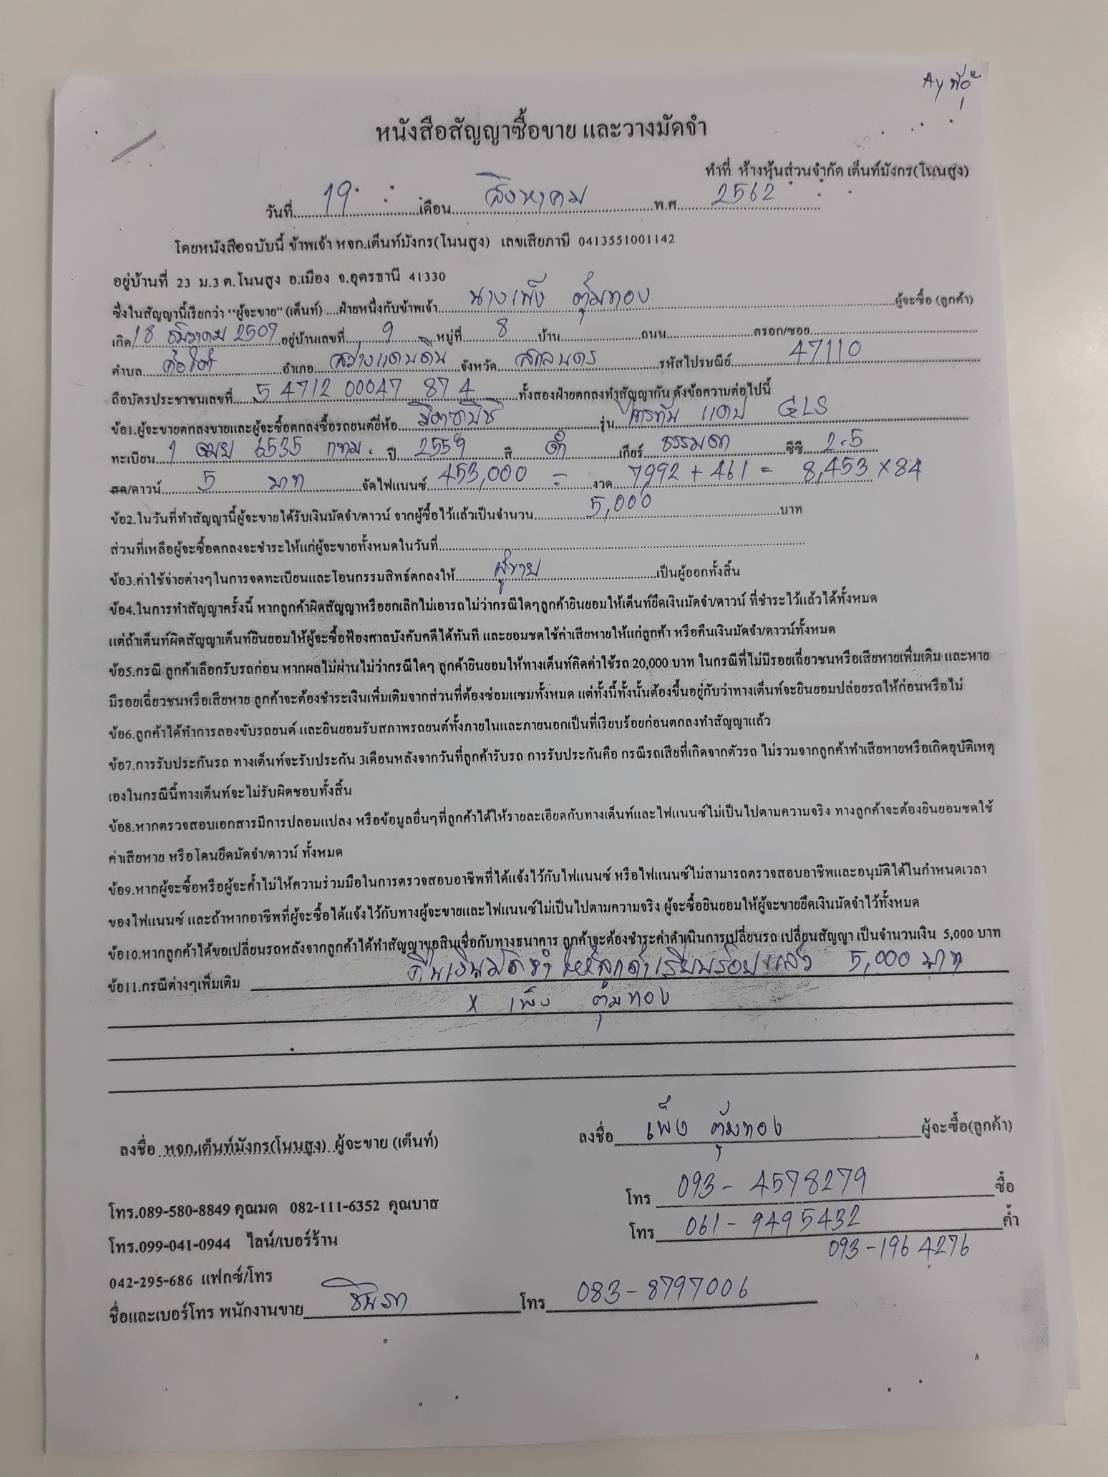 หนังสือสัญญาซื้อขาย และวางมัดจำ
ทำที่ ห้างหุ้นส่วนจำกัด เต็นท์มังกร(โนนสูง)
วันที่ 19 เดือน สิงหาคม พ.ศ. 2562
โดยหนังสือฉบับนี้ ข้าพเจ้า หจก.เต็นท์มังกร(โนนสูง) เลขเสียภาษี 0413551001142
อยู่บ้านที่ 23 ม.3 ต.โนนสูง อ.เมือง จ.อุดรธานี 41330
ซึ่งในสัญญานี้เรียกว่า "ผู้จะขาย" (เต็นท์) ....ฝ่ายหนึ่งกับข้าพเจ้า นางเพ็ง ตุ้มทอง ผู้จะซื้อ (ลูกค้า)
เกิด 18 ธันวาคม 2509 อยู่บ้านเลขที่ 9 หมู่ที่ 8 บ้าน ถนน ตรอก/ซอย
ตำบล ค้อใต้ อำเภอ สว่างแดนดิน จังหวัด สกลนคร รหัสไปรษณีย์ 47110
ถือบัตรประชาชนเลขที่ 5 4712 00047 87 4 ทั้งสองฝ่ายตกลงทำสัญญากัน ดังข้อความต่อไปนี้
ข้อ1.ผู้จะขายตกลงขายและผู้จะซื้อตกลงซื้อรถยนต์ยี่ห้อ มิตซูบิชิ รุ่น ไทรทัน แคป GLS
ทะเบียน 1 6535 กทม. ปี 2559 สี ดำ เกียร์ ธรรมดา ซีซี 2.5
สด/ดาวน์ 5 บาท จัดไฟแนนซ์ 453,000 = งวด 7992 + 461 = 8,453 × 84
ข้อ2.ในวันที่ทำสัญญานี้ผู้จะขายได้รับเงินมัดจำ/ดาวน์ จากผู้ซื้อไว้แล้วเป็นจำนวน 5,000 บาท
ส่วนที่เหลือผู้จะซื้อตกลงจะชำระให้แก่ผู้จะขายทั้งหมดในวันที่
ข้อ3.ค่าใช้จ่ายต่างๆในการจดทะเบียนและโอนกรรมสิทธิ์ตกลงให้ ผู้ขาย เป็นผู้ออกทั้งสิ้น
ข้อ4.ในการทำสัญญาครั้งนี้ หากลูกค้าผิดสัญญาหรือยกเลิกไม่เอารถไม่ว่ากรณีใดๆลูกค้ายินยอมให้เต็นท์ยึดเงินมัดจำ/ดาวน์ ที่ชำระไว้แล้วได้ทั้งหมด
แต่ถ้าเต็นท์ผิดสัญญาเต็นท์ยินยอมให้ผู้จะซื้อฟ้องศาลบังคับคดีได้ทันที และยอมชดใช้ค่าเสียหายให้แก่ลูกค้า หรือคืนเงินมัดจำ/ดาวน์ทั้งหมด
ข้อ5.กรณี ลูกค้าเลือกรับรถก่อน หากผลไม่ผ่านไม่ว่ากรณีใดๆ ลูกค้ายินยอมให้ทางเต็นท์คิดค่าใช้รถ 20,000 บาท ในกรณีที่ไม่มีรอยเฉี่ยวชนหรือเสียหายเพิ่มเติม และหาย
มีรอยเฉี่ยวชนหรือเสียหาย ลูกค้าจะต้องชำระเงินเพิ่มเติมจากส่วนที่ต้องซ่อมแซมทั้งหมด แต่ทั้งนี้ทั้งนั้นต้องขึ้นอยู่กับว่าทางเต็นท์จะยินยอมปล่อยรถให้ก่อนหรือไม่
ข้อ6.ลูกค้าได้ทำการลองขับรถยนต์ และยินยอมรับสภาพรถยนต์ทั้งภายในและภายนอกเป็นที่เรียบร้อยก่อนตกลงทำสัญญาแล้ว
ข้อ7.การรับประกันรถ ทางเต็นท์จะรับประกัน 3เดือนหลังจากวันที่ลูกค้ารับรถ การรับประกันคือ กรณีรถเสียที่เกิดจากตัวรถ ไม่รวมจากลูกค้าทำเสียหายหรือเกิดอุบัติเหตุ
เองในกรณีนี้ทางเต็นท์จะไม่รับผิดชอบทั้งสิ้น
ข้อ8.หากตรวจสอบเอกสารมีการปลอมแปลง หรือข้อมูลอื่นๆที่ลูกค้าได้ให้รายละเอียดกับทางเต็นท์และไฟแนนซ์ไม่เป็นไปตามความจริง ทางลูกค้าจะต้องยินยอมชดใช้
ค่าเสียหาย หรือโดนยึดมัดจำ/ดาวน์ ทั้งหมด
ข้อ9.หากผู้จะซื้อหรือผู้จะค้ำไม่ให้ความร่วมมือในการตรวจสอบอาชีพที่ได้แจ้งไว้กับไฟแนนซ์ หรือไฟแนนซ์ไม่สามารถตรวจสอบอาชีพและอนุมัติได้ในกำหนดเวลา
ของไฟแนนซ์ และถ้าหากอาชีพที่ผู้จะซื้อได้แจ้งไว้กับทางผู้จะขายและไฟแนนซ์ไม่เป็นไปตามความจริง ผู้จะซื้อยินยอมให้ผู้จะขายยึดเงินมัดจำไว้ทั้งหมด
ข้อ10.หากลูกค้าได้ขอเปลี่ยนรถหลังจากลูกค้าได้ทำสัญญาขอสินเชื่อกับทางธนาคาร ลูกค้าจะต้องชำระค่าดำเนินการเปลี่ยนรถ เปลี่ยนสัญญา เป็นจำนวนเงิน 5,000 บาท
ข้อ11.กรณีต่างๆเพิ่มเติม คืนเงินมัดจำ ให้ลูกค้าเรียบร้อยแล้ว 5,000 บาท
x เพ็ง ตุ้มทอง
ลงชื่อ หจก.เต็นท์มังกร(โนนสูง) ผู้จะขาย (เต็นท์)
ลงชื่อ เพ็ง ตุ้มทอง ผู้จะซื้อ(ลูกค้า)
โทร.089-580-8849 คุณมด 082-111-6352 คุณบาส
โทร 093-4578279 ซื้อ
โทร.099-041-0944 ไลน์/เบอร์ร้าน
โทร 061-9495432 ค้ำ
093-196 4276
042-295-686 แฟกซ์/โทร
ชื่อและเบอร์โทร พนักงานขาย โทร 083-8797006